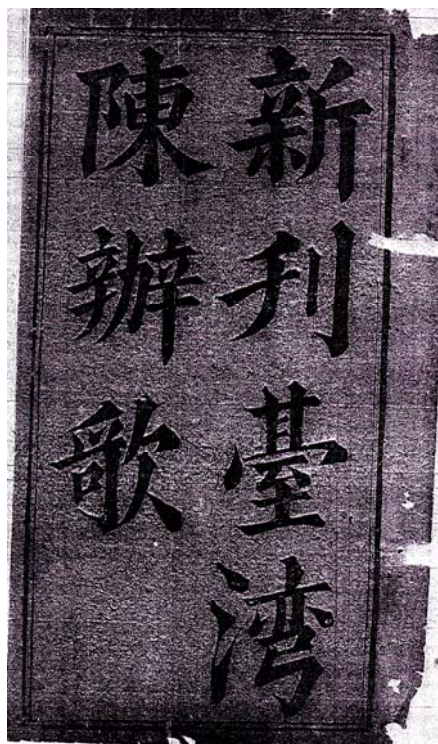 新刊臺湾
陳辦歌